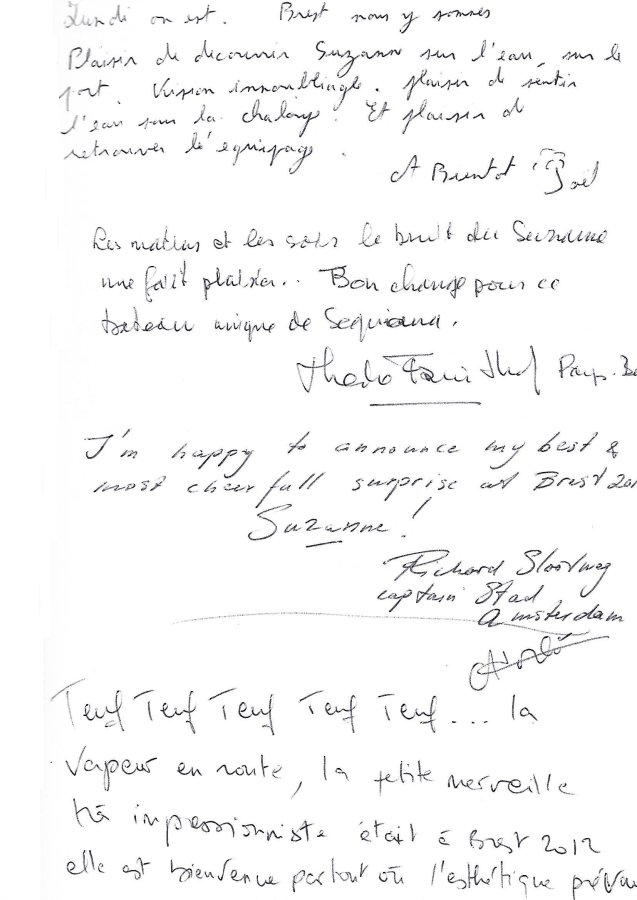 Lundi on est. Brest nous y sommes
Plaisir de decouvrir Suzanne sur l'eau, sur le
port. Vision innoubliagle. plaisir de sentir
l'eau sous la chaloupe. Et plaisir de
retrouver l'équipage.
A Bientot Joël
Les matins et les soirs le bruit du Suzanne
me fait plaisir.. Bon change pour ce
bateau unique de Sequana.
Pays-Ba
I'm happy to announce my best &
most cheerfull surprise at Brest 201
Suzanne!
Richard Slootweg
captain Stad
Amsterdam
Teuf Teuf Teuf Teuf Teuf... la
vapeur en route, la petite merveille
impressionniste était à Brest 2012
elle est bienvenue partout où l'esthétique prévau